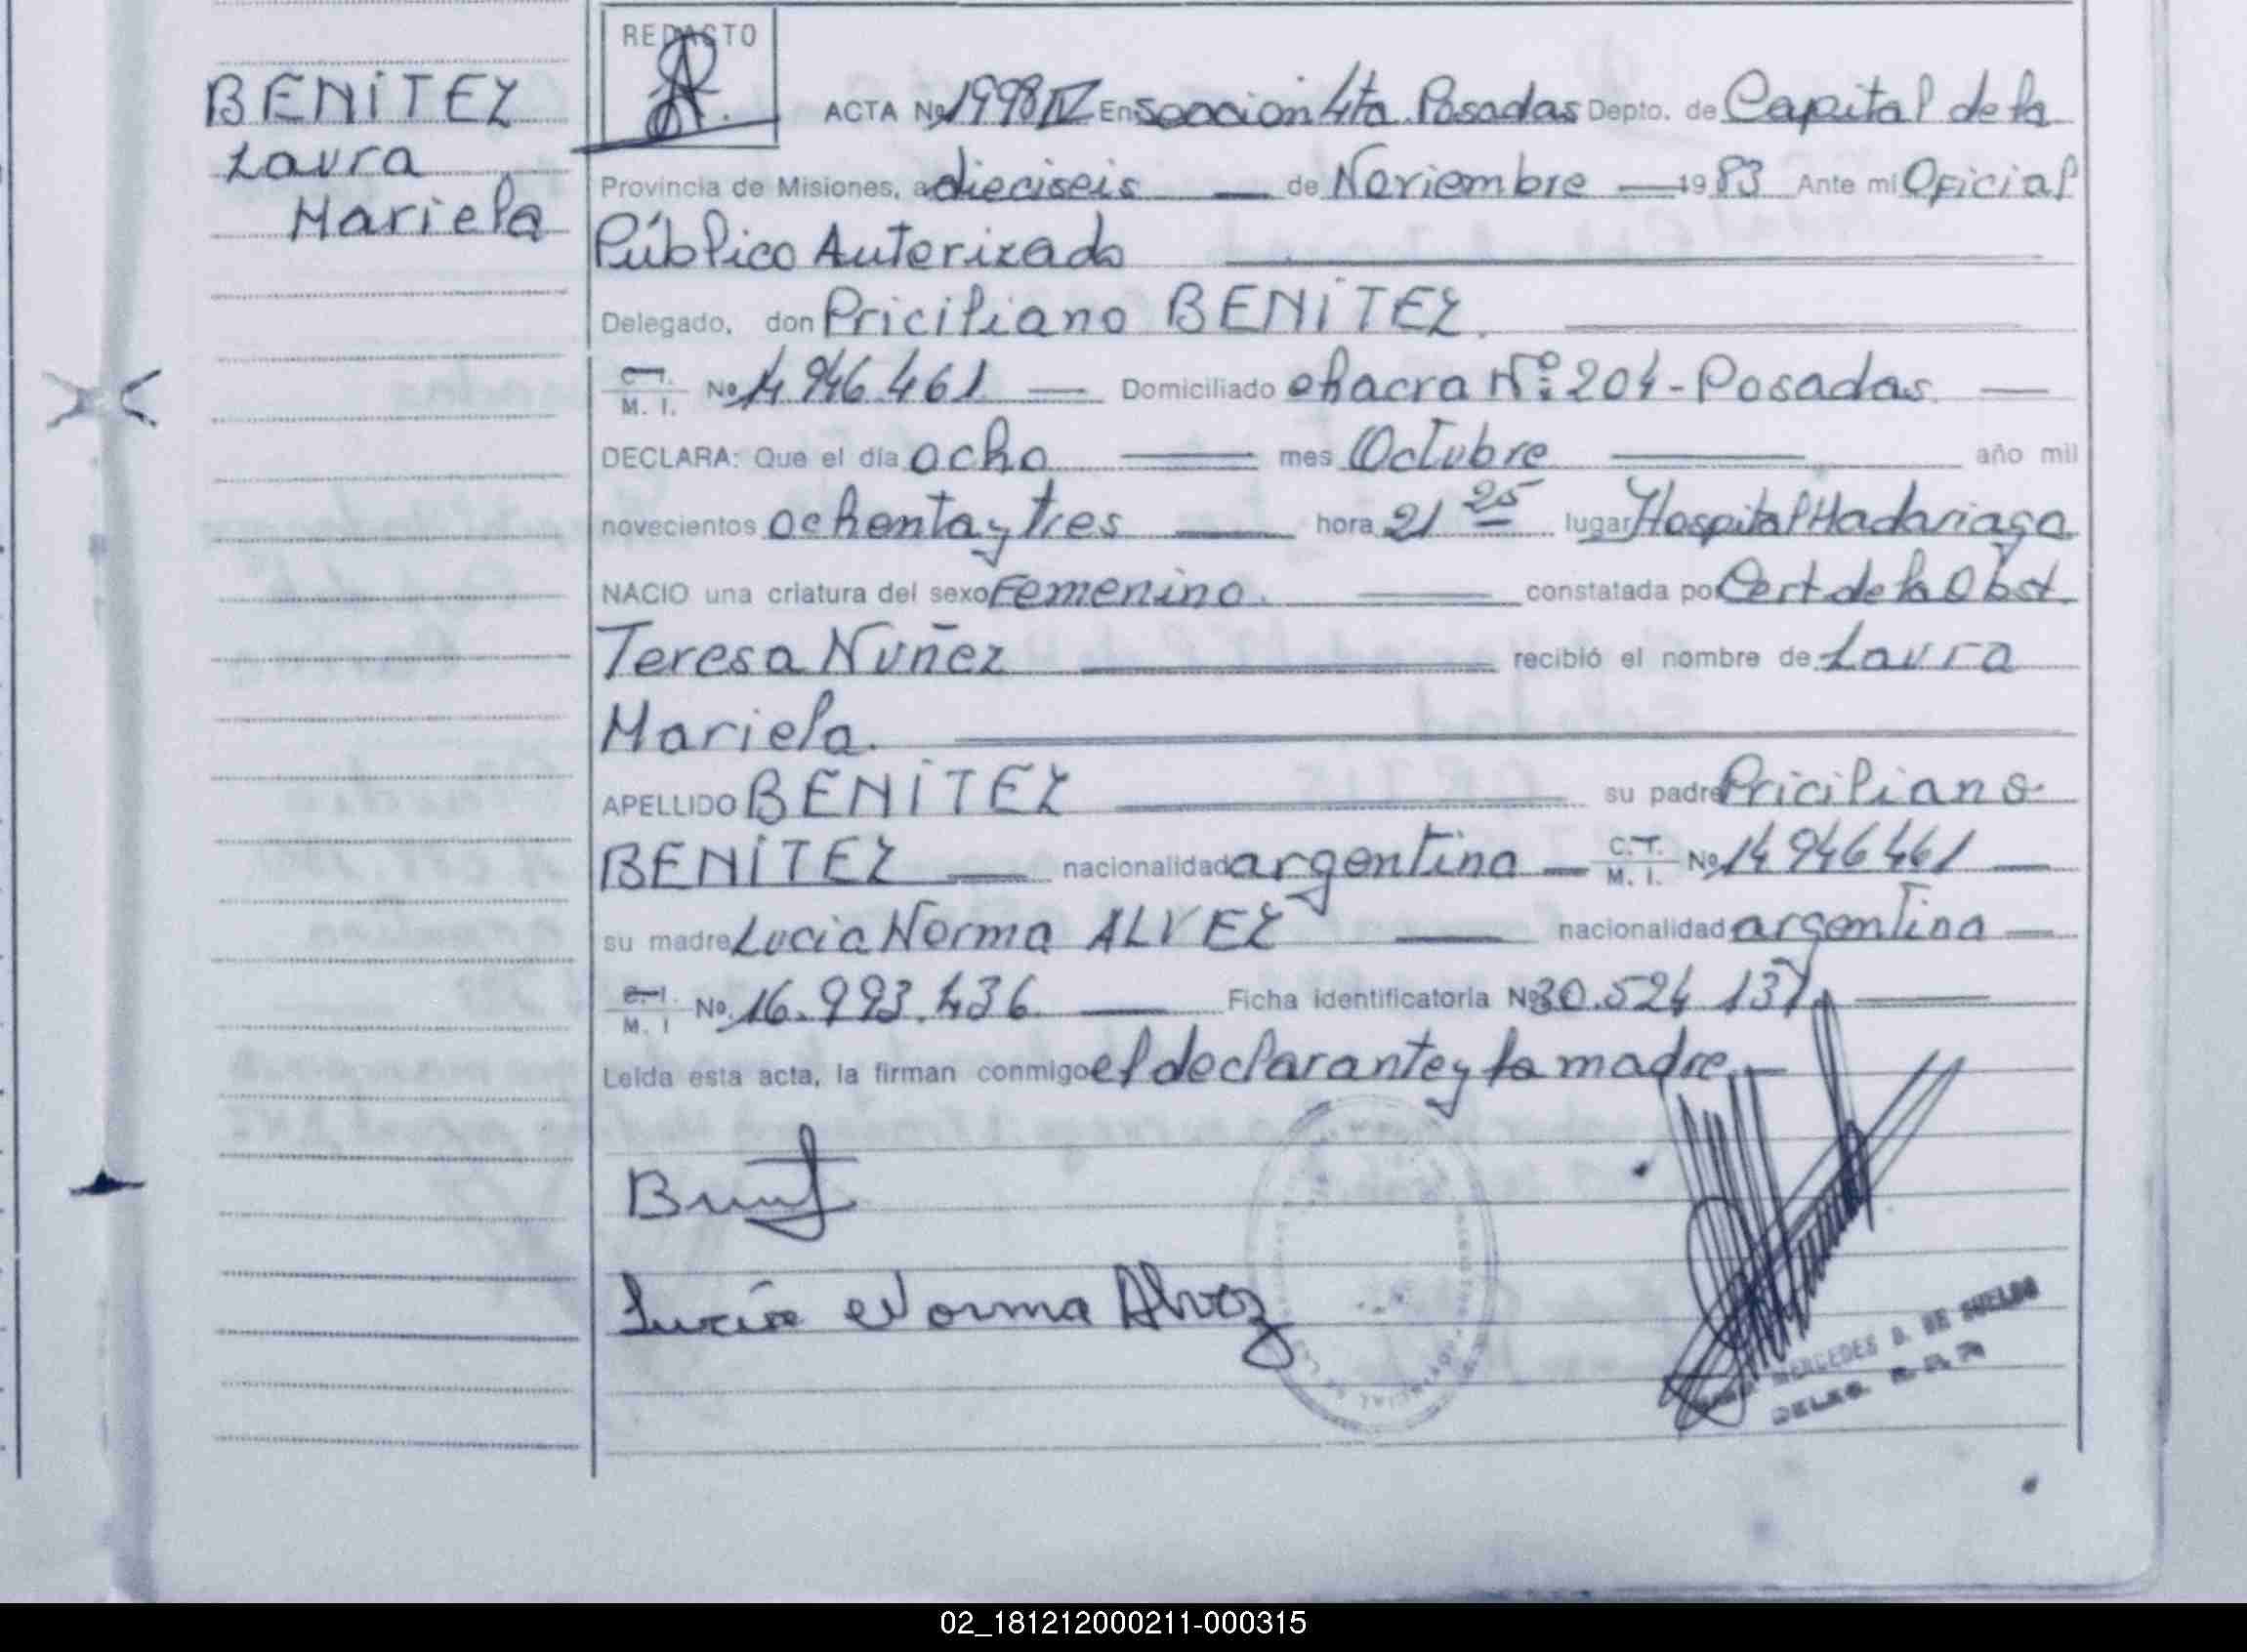 REDACTO
BENITEZ
Laura
Mariela
ACTA Nº 1998 IV En seccion 4ta Posadas Depto. de Capital de la
Provincia de Misiones, a dieciseis de Noviembre 1983 Ante mi Oficial
Público Autorizado
Delegado, don Priciliano BENITEZ.
C. I. M. I. Nº 14 946 461 Domiciliado chacra Nº: 204 - Posadas.
DECLARA: Que el día ocho mes Octubre año mil
novecientos ochenta y tres hora 21 25 lugar Hospital Madariaga
NACIO una criatura del sexo Femenino. constatada por Cert de la Obst.
Teresa Nuñez recibió el nombre de Laura
Mariela.
APELLIDO BENITEZ su padre Priciliano
BENITEZ nacionalidad argentina C.T. M. I. Nº 14 946 461
su madre Lucia Norma ALVEZ nacionalidad argentina
C. I. M. I Nº 16.993.436 Ficha identificatoria Nº 30.524 137.
Leída esta acta, la firman conmigo el declarante y la madre.
Lucia Norma Alvez
MERCEDES
DELEG.
02_181212000211-000315